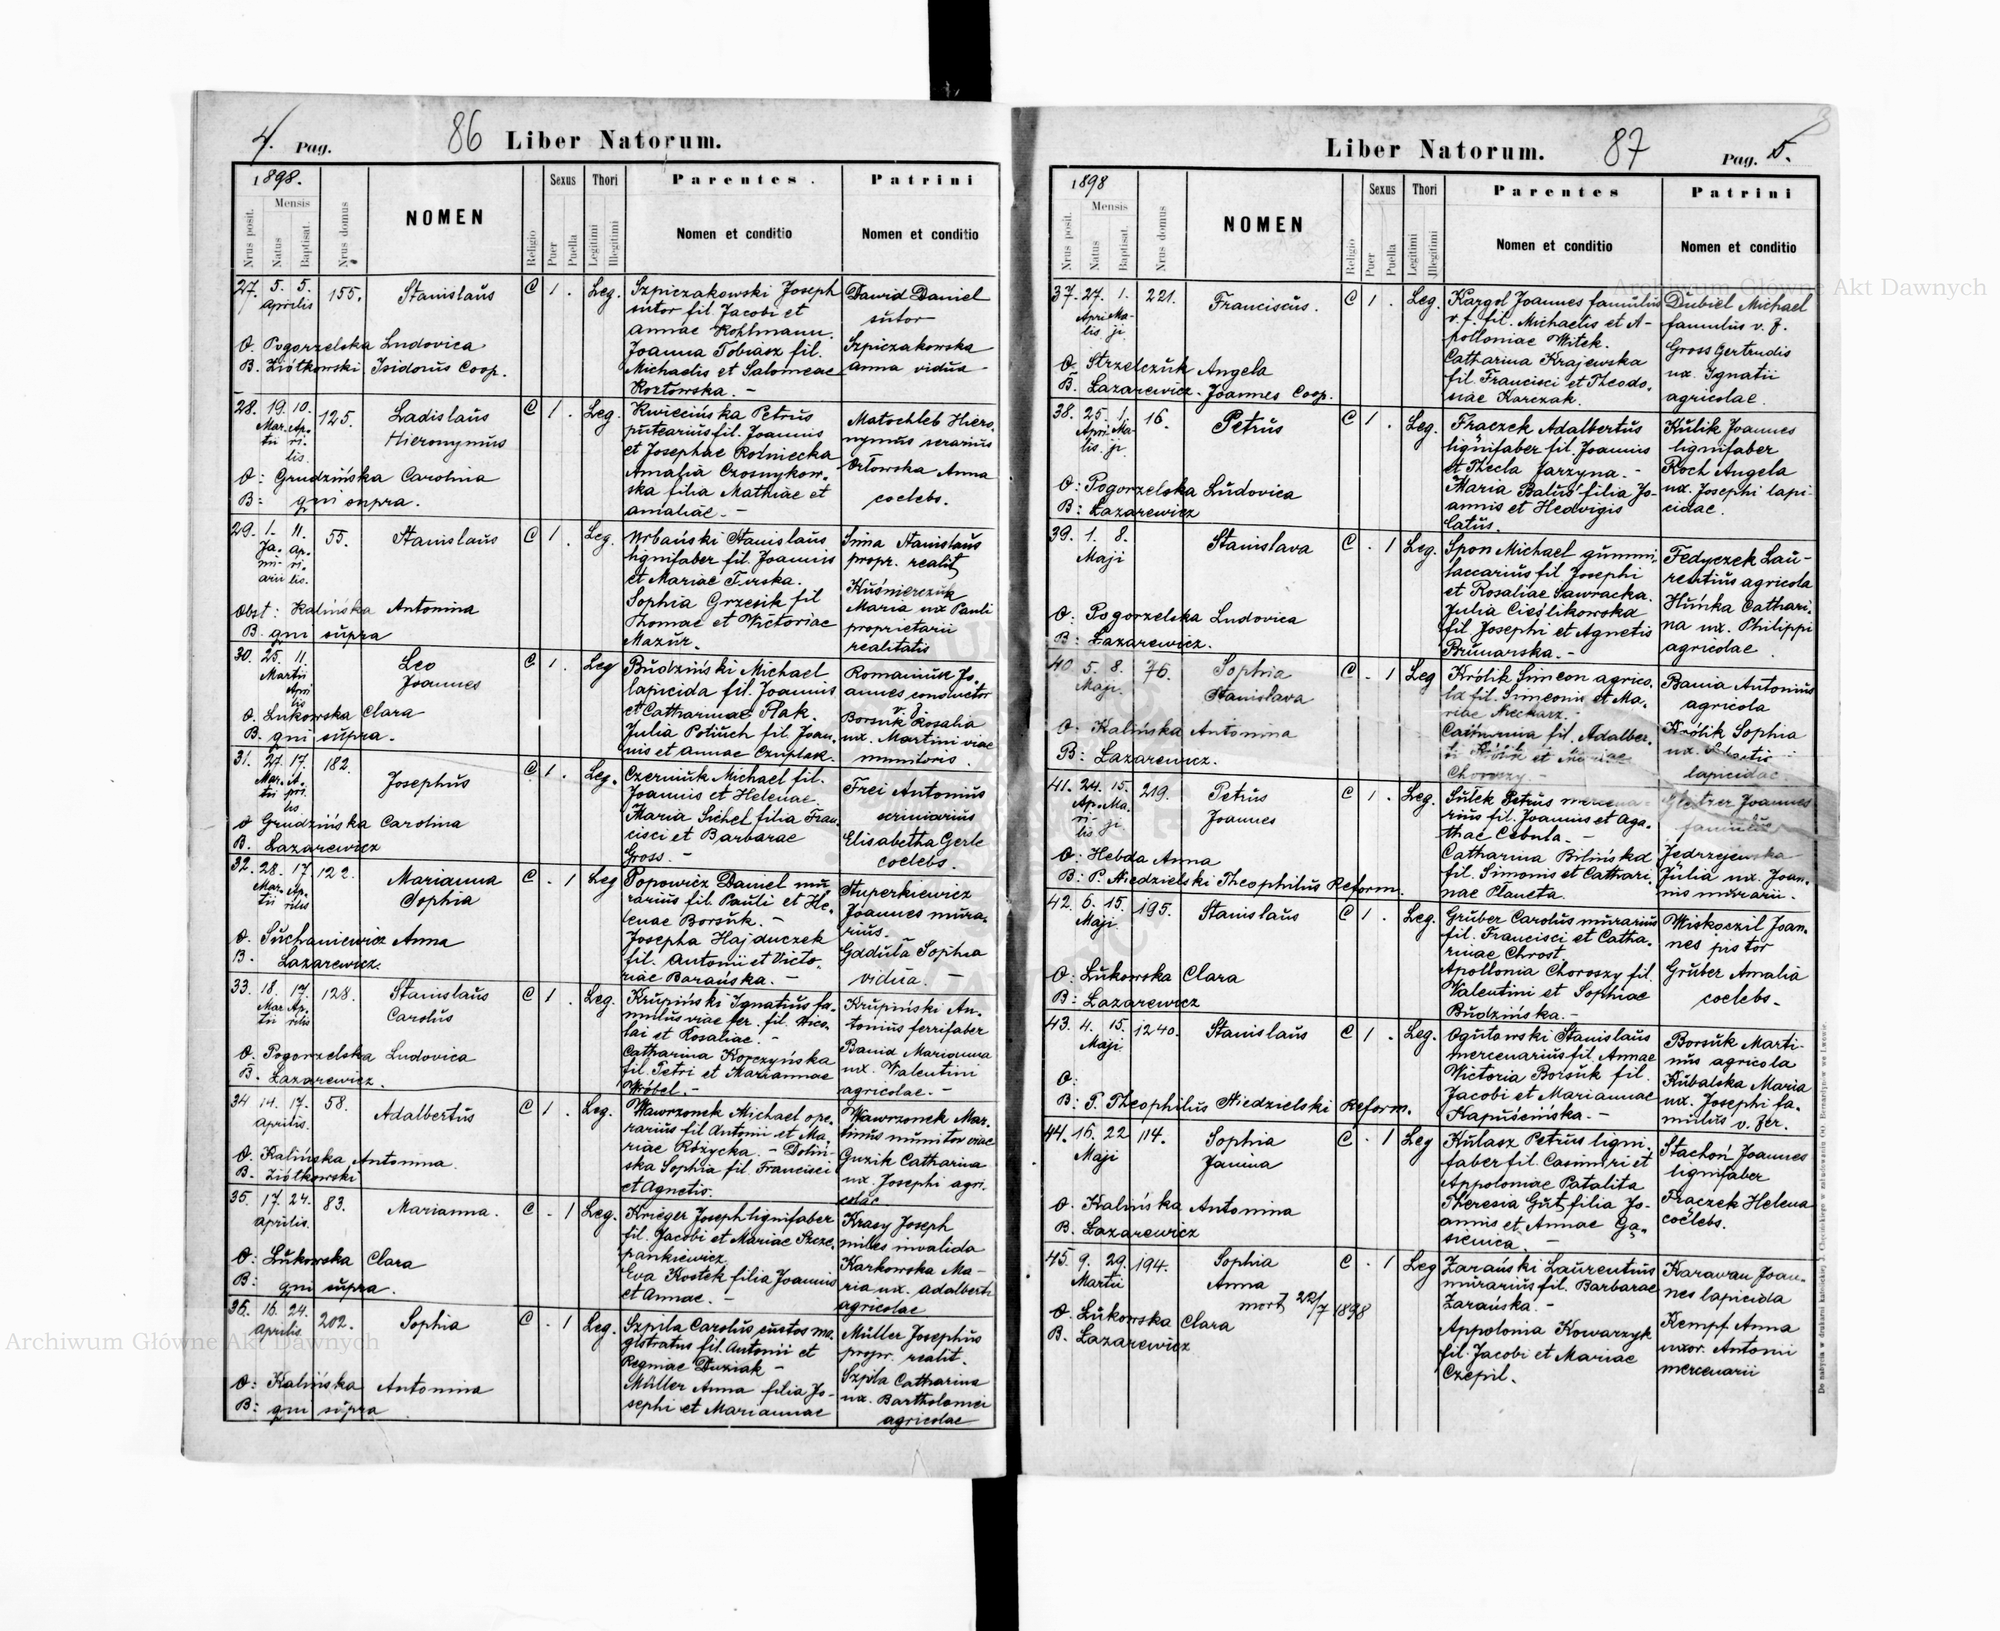 4. Pag. 86 Liber Natorum.
1898. Mensis
Nrus posit. Natus Baptisat. Nrus domus NOMEN Religio Sexus Puer Puella Thori Legitimi Illegitimi Parentes. Nomen et conditio Patrini Nomen et conditio
27. 5. 5. Aprilis 155. Stanislaus C 1. Leg.
O. Pogorzelska Ludovica
B. Ziółkowski Isidorus Coop.
Szpiczakowski Joseph
sutor fil. Jacobi et
Annae Kohlmann.
Joanna Tobiasz fil.
Michaelis et Salomeae
Kozłowska. -
Dawid Daniel
sutor
Szpiczakowska
Anna vidua
28. 19. Martii 10. Aprilis. 125. Ladislaus
Hieronymus C 1. Leg.
O: Grudzińska Carolina
B: qui supra.
Kwiecińska Petrus
putearius fil. Joannis
et Josephae Rolniecka
Amalia Czosnykow-
ska filia Mathiae et
Amaliae. -
Matochleb Hiero-
nymus serarius
Orłowska Anna
coelebs.
29. 1. Januarii 11. Aprilis. 55. Stanislaus C 1. Leg.
Obst: Kalińska Antonina
B. qui supra
Urbański Stanislaus
lignifaber fil. Joannis
et Mariae Turska.
Sophia Grzesik fil
Thomae et Victoriae
Mazur.
Stanislaus
propr. realit
Kuśnierczuk
Maria ux Pauli
proprietarii
realitatis
30. 25. Martii 11. Aprilis Leo
Joannes C 1. Leg
O. Lukowska Clara
B. qui supra.
Budziński Michael
lapicida fil. Joannis
et Catharinae Flak.
Julia Potiuch fil. Joan-
nis et Annae Czuplak.
Romaniuk Jo-
annes conductor
v. f.
Borsuk Rosalia
ux. Martini viae
munitoris.
31. 27. Martii 17. Aprilis 182. Josephus C 1. Leg.
O Grudzińska Carolina
B. Lazarewicz
Czerniuk Michael fil.
Joannis et Helenae
Maria Sichel filia Fran-
cisci et Barbarae
Gross. -
Frei Antonius
scriniarius
Elisabetha Gerle
coelebs.
32. 28. Martii 17. Aprilis 122. Marianna
Sophia C . 1 Leg
O. Suchaniewicz Anna
B. Lazarewicz.
Popowicz Daniel mu-
rarius fil. Pauli et He-
lenae Borsuk. -
Josepha Hajduczek
fil. Antonii et Victo-
riae Barańska. -
Stuperkiewicz
Joannes mura-
rius.
Gdadula Sophia
vidua. -
33. 18. Martii 17. Aprilis 128. Stanislaus
Carolus C 1. Leg.
O. Pogorzelska Ludovica
B. Lazarewicz.
Krupiński Ignatius fa-
mulus viae fer. fil. Nico-
lai et Rosaliae. -
Catharina Kopczyńska
fil. Petri et Mariannae
Wróbel. -
Krupiński An-
tonius ferrifaber
Bania Marianna
ux. Valentini
agricolae. -
34 14. 17. Aprilis. 58. Adalbertus C 1. Leg.
O. Kalińska Antonina.
B. Ziółkowski
Wawrzonek Michael ope-
rarius fil Antonii et Ma-
riae Różycka. - Doliń-
ska Sophia fil. Francisci
et Agnetis.
Wawrzonek Mar-
tinus munitor viae
Guzik Catharina
ux. Josephi agri-
colae
35. 17. 24. Aprilis. 83. Marianna. C . 1 Leg.
O: Lukowska Clara
B: qui supra.
Krieger Joseph lignifaber
fil. Jacobi et Mariae Szcze-
pankiewicz.
Eva Kostek filia Joannis
et Annae. -
Krasy Joseph
miles invalida
Karkowska Ma-
ria ux. Adalberti
agricolae
36. 16. 24. Aprilis. 202. Sophia C . 1 Leg.
O: Kalińska Antonina
B: qui supra
Szpila Carolus custos ma-
gistratus fil. Antonii et
Reginae Duziak -
Müller Anna filia Jo-
sephi et Mariannae
Müller Josephus
propr. realit.
Szpila Catharina
ux. Bartholomei
agricolae
Liber Natorum. 87 Pag. 5.
1898 Mensis
Nrus posit. Natus Baptisat. Nrus domus NOMEN Religio Sexus Puer Puella Thori Legitimi Illegitimi Parentes Nomen et conditio Patrini Nomen et conditio
37. 27. Aprilis 1. Maji 221. Franciscus. C 1. Leg.
O. Strzelczuk Angela
B. Lazarewicz Joannes Coop.
Kargol Joannes famulus
v. f. fil. Michaelis et A-
polloniae Witek.
Catharina Krajewska
fil. Francisci et Theodo-
siae Karczak.
Dubiel Michael
famulus v. f.
Gross Gertrudis
ux. Ignatii
agricolae.
38. 25. Aprilis 1. Maji 16. Petrus C 1. Leg.
O: Pogorzelska Ludovica
B: Lazarewicz
Fraczek Adalbertus
lignifaber fil. Joannis
et Thecla Jarzyna. -
Maria Balus filia Jo-
annis et Hedvigis
Catus.
Kulik Joannes
lignifaber
Roch Angela
ux. Josephi lapi-
cidae.
39. 1. 8. Maji Stanislava C . 1 Leg.
O: Pogorzelska Ludovica
B: Lazarewicz.
Spon Michael gummi-
laccarius fil Josephi
et Rosaliae Sawracka.
Julia Cieślikowska
fil Josephi et Agnetis
Brunarska. -
Fedyczek Lau-
rentius agricola
Hunka Cathari-
na ux. Philippi
agricolae
40 5. 8. Maji 76. Sophia
Stanislava C . 1 Leg
O: Kalińska Antonina
B: Lazarewicz.
Królik Simeon agrico-
la fil. Simeonis et Ma-
riae Niecharz.
Catharina fil. Adalber-
ti Królik et Mariae
Choroszy. -
Bania Antonius
agricola
Królik Sophia
ux.
lapicidae.
41. 24. Aprilis 15. Maji 219. Petrus
Joannes C 1. Leg.
O: Hebda Anna
B: P. Niedzielski Theophilus Reform.
Sulek Petrus mercena-
rius fil. Joannis et Aga-
thae Cebula. -
Catharina Bilińska
fil. Simonis et Cathari-
nae Planeta.
Joannes
famulus
Jedrzejewska
Julia ux. Joan-
nis murarii.
42. 6. 15. Maji 195. Stanislaus C 1. Leg.
O: Lukowska Clara
B: Lazarewicz
Gruber Carolus murarius
fil. Francisci et Catha-
rinae Chrost.
Apollonia Choroszy fil.
Valentini et Sophiae
Budzińska. -
Wiskoczil Joan-
nes pistor
Gruber Amalia
coelebs -
43. 4. 15. Maji 1240. Stanislaus C 1. Leg.
O:
B: P. Theophilus Niedzielski Reform.
Ogutowski Stanislaus
mercenarius fil. Annae
Victoria Borsuk fil.
Jacobi et Mariannae
Kapuścińska. -
Borsuk Marti-
nus agricola
Kubalska Maria
ux. Josephi fa-
mulus v. fer.
44. 16. 22 Maji 114. Sophia
Janina C . 1 Leg
O. Kalińska Antonina
B. Lazarewicz
Kulasz Petrus ligni-
faber fil. Casimiri et
Appoloniae Patalita
Theresia Gut filia Jo-
annis et Annae Gą-
sienica. -
Stachoń Joannes
lignifaber
Fraczek Helena
coelebs.
45. 9. 29. Martii 194. Sophia
Anna
mort 22/7 1898 C . 1 Leg
O. Lukowska Clara
B. Lazarewicz
Zarański Laurentius
murarius fil. Barbarae
Zarańska. -
Appolonia Kowarzyk
fil. Jacobi et Mariae
Czepil.
Karawan Joan-
nes lapicida
Kempf Anna
uxor. Antonii
mercenarii
Archiwum Główne Akt Dawnych
Archiwum Główne Akt Dawnych